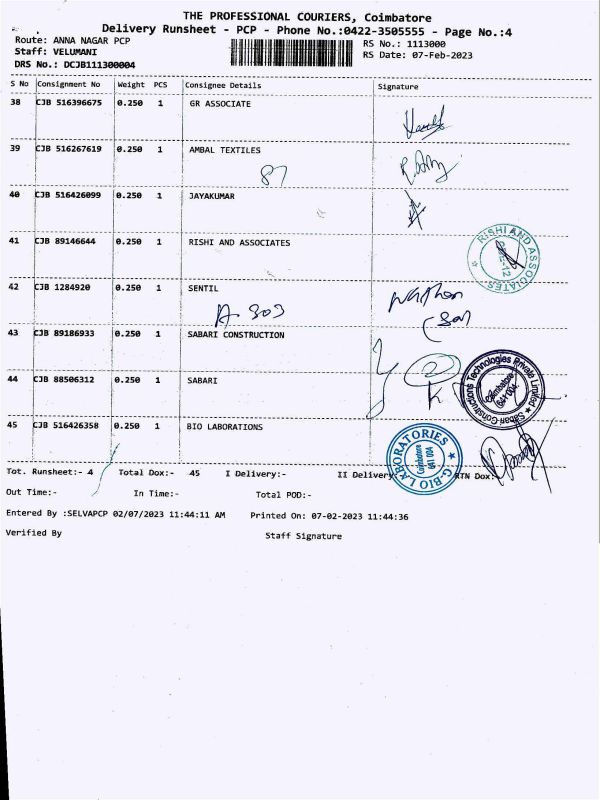 THE PROFESSIONAL COURIERS, Coimbatore
Delivery Runsheet - PCP - Phone No.:0422-3505555 - Page No.:4
Route: ANNA NAGAR PCP
RS No.: 1113000
Staff: VELUMANI
RS Date: 07-Feb-2023
DRS No.: DCJB111300004
S No Consignment No Weight PCS Consignee Details Signature
38 CJB 516396675 0.250 1 GR ASSOCIATE
39 CJB 516267619 0.250 1 AMBAL TEXTILES
87
40 CJB 516426099 0.250 1 JAYAKUMAR
41 CJB 89146644 0.250 1 RISHI AND ASSOCIATES
RISHI AND ASSOCIATES
42 CJB 1284920 0.250 1 SENTIL
A 303
43 CJB 89186933 0.250 1 SABARI CONSTRUCTION
2
44 CJB 88506312 0.250 1 SABARI
Sabari Constructions Technologies Private Limited
Coimbatore
641 004
45 CJB 516426358 0.250 1 BIO LABORATIONS
G-BIO LABORATORIES
Coimbatore
641 004
Tot. Runsheet:- 4 Total Dox:- 45 I Delivery:- II Delivery RTN Dox:
Out Time:- In Time:- Total POD:-
Entered By :SELVAPCP 02/07/2023 11:44:11 AM Printed On: 07-02-2023 11:44:36
Verified By Staff Signature